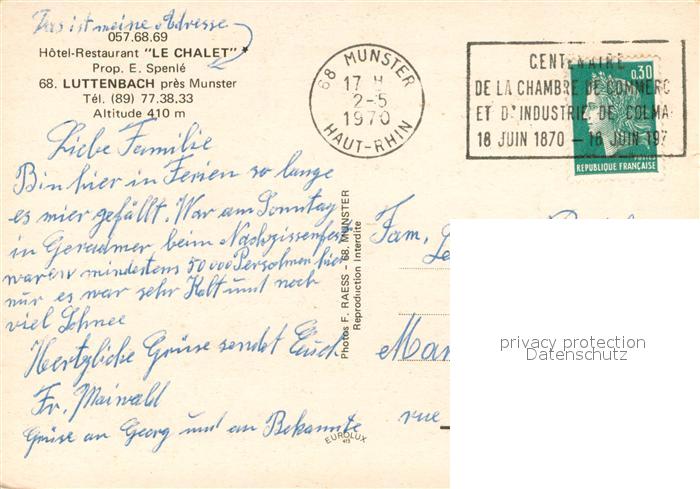 Das ist meine Adresse
057.68.69
Hôtel-Restaurant "LE CHALET" *
Prop. E. Spenlé
68. LUTTENBACH près Munster
Tél. (89) 77.38.33
Altitude 410 m
68 MUNSTER
17 H
2-5
1970
HAUT-RHIN
CENTENAIRE
DE LA CHAMBRE DE COMMERC
ET D'INDUSTRIE DE COLMA
18 JUIN 1870 – 18 JUIN 197
0,30
REPUBLIQUE FRANÇAISE
Liebe Familie
Bin hier in Ferien so lange
es mier gefällt. War am Sonntag
in Geradmer beim
waren mindestens 50000 Persohnen hier
nur es war sehr Kalt und noch
viel Schnee
Hertzliche Grüse sendet Euch
Fr. Maiwald
Grüse an Georg und an Bekannte
Photos F. RAESS – 68. MUNSTER
Reproduction Interdite
EUROLUX
Fam,
Mar
rue
privacy protection
Datenschutz